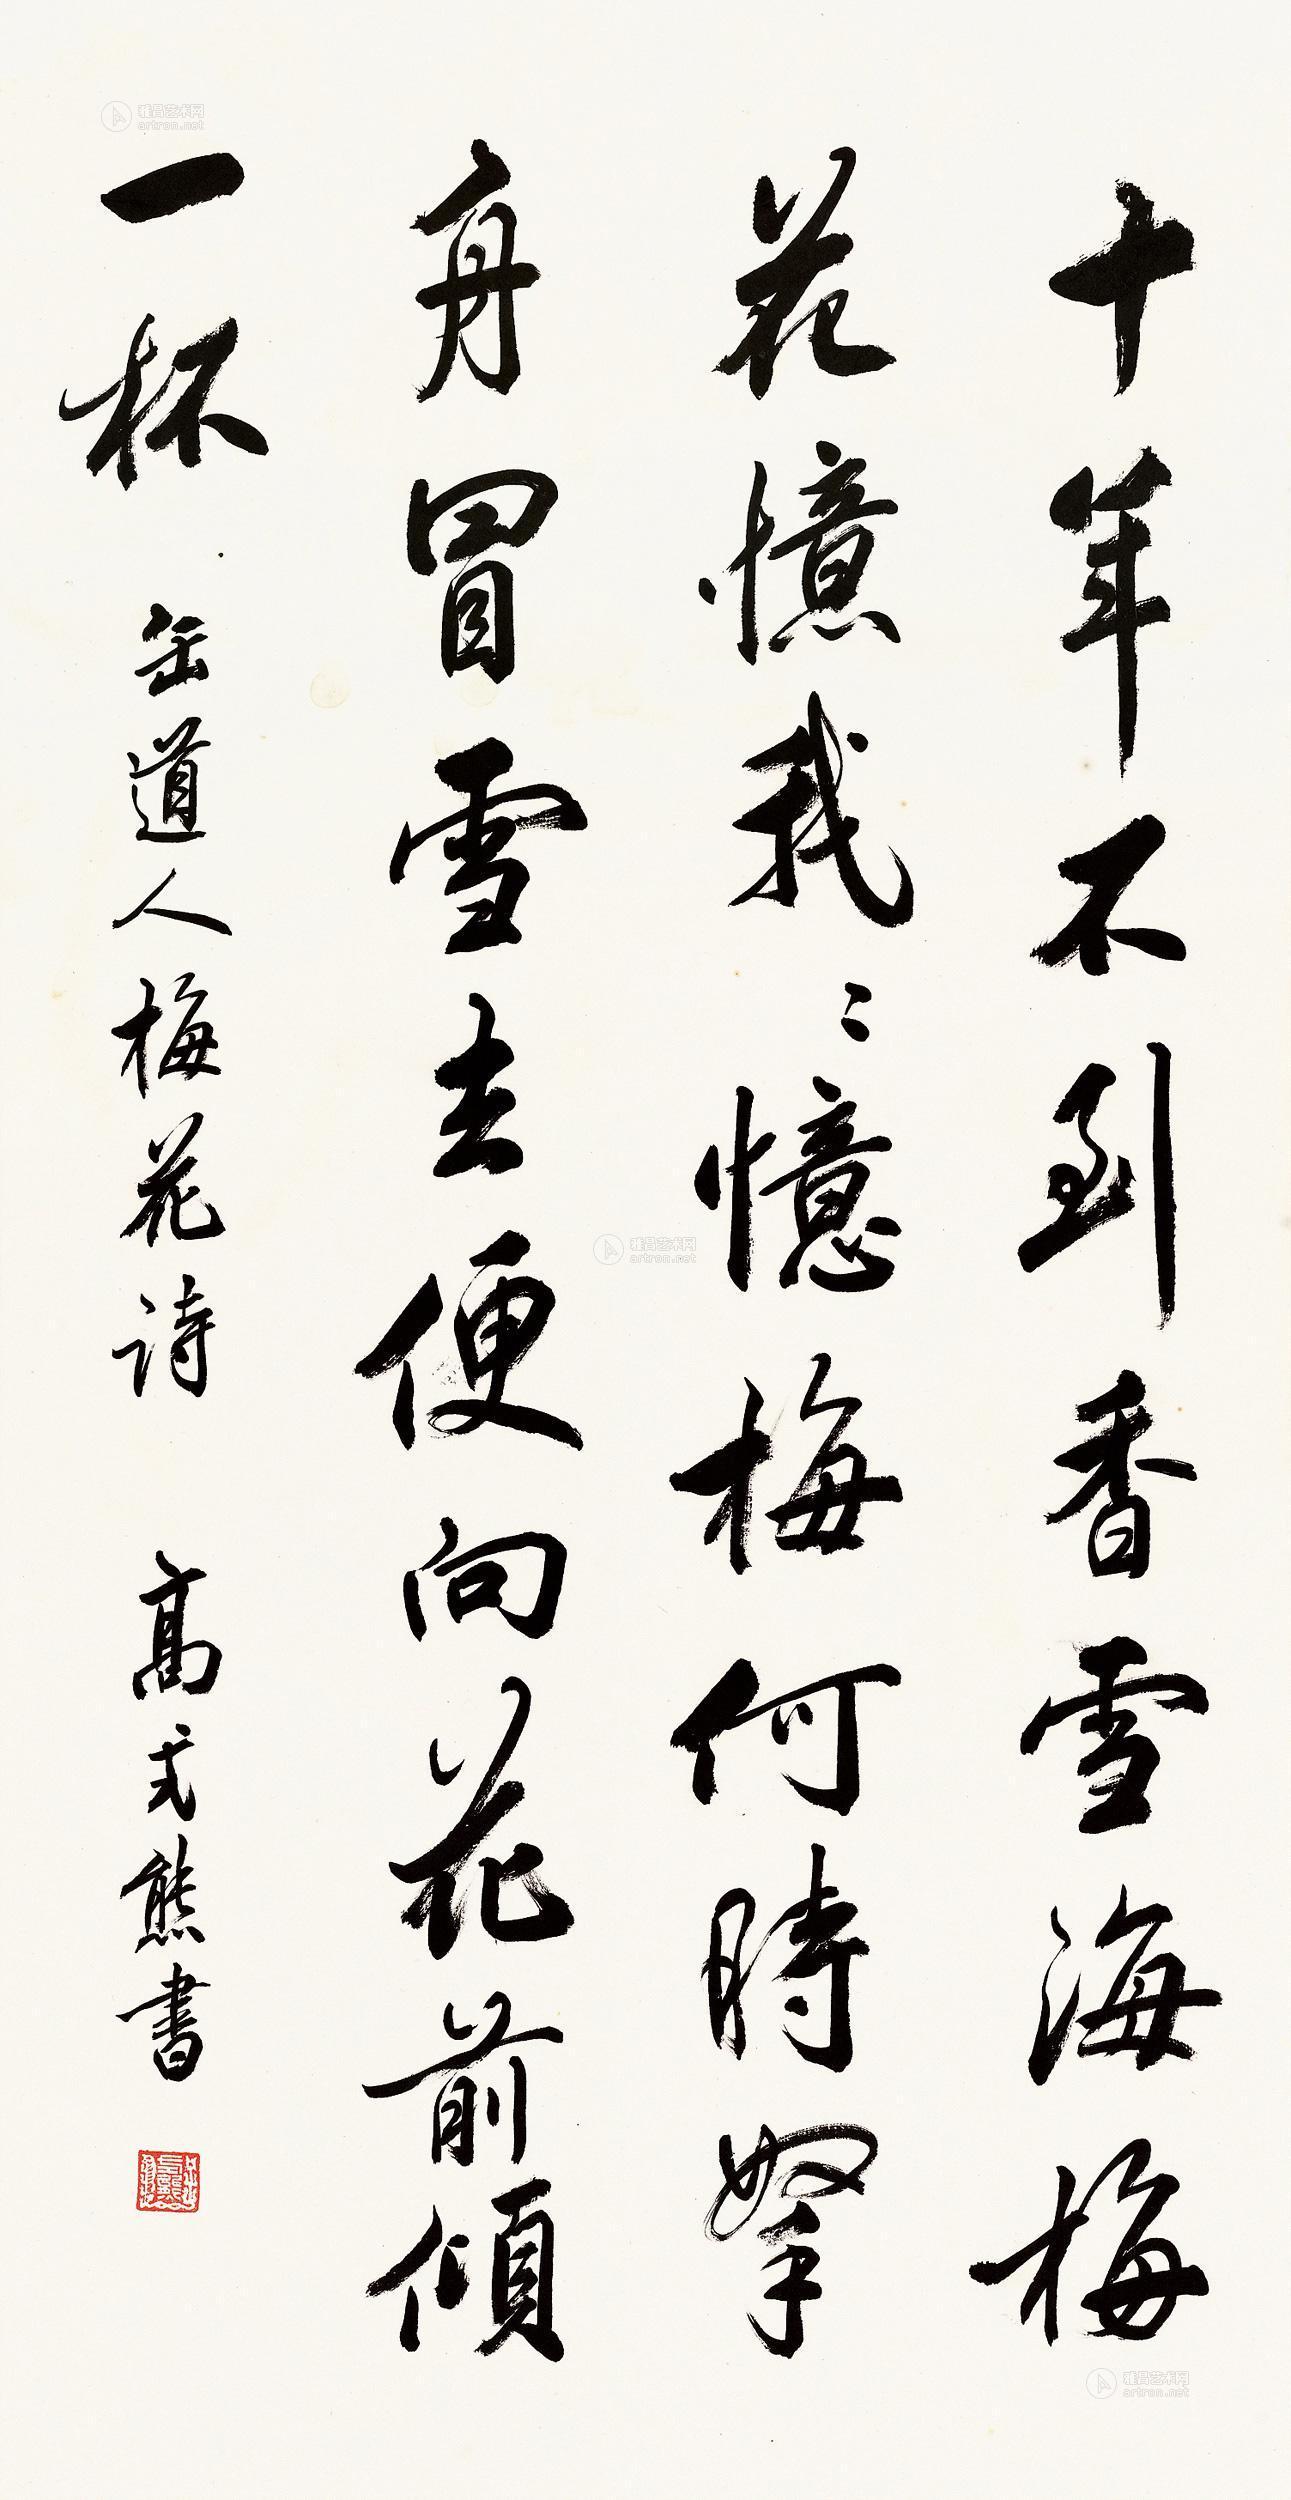 十年不到香雪海梅
花憶我〻憶梅何時拏
舟冒雪去便向花前傾
一杯
缶道人梅花诗 高式熊書
雅昌艺术网
artron.net
雅昌艺术网
artron.net
雅昌艺术网
artron.net